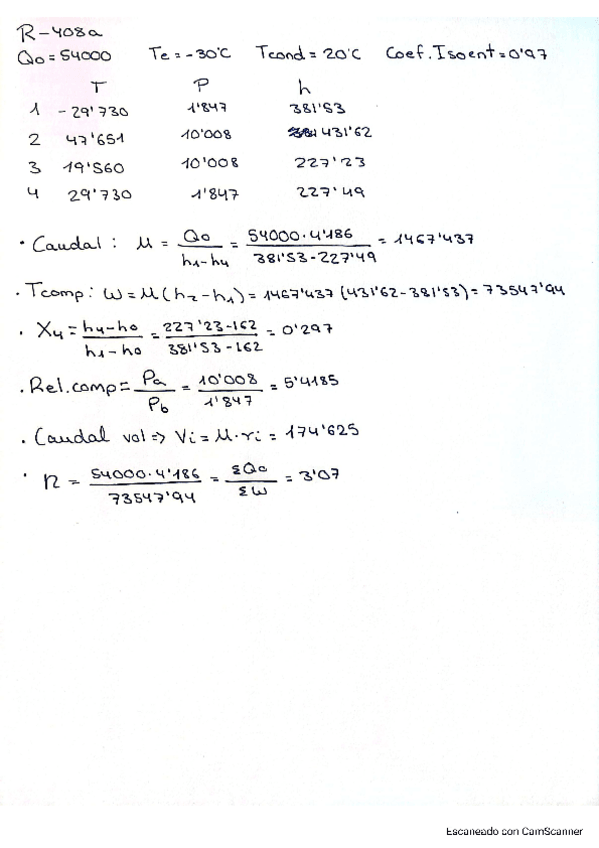 R-408a
Qo = 54000 Te = -30°C Tcond = 20°C Coef. Isoent = 0'97
T P h
1 -29'730 1'847 381'53
2 47'651 10'008 431'62
3 19'560 10'008 227'23
4 29'730 1'847 227'49
· Caudal : M = Qo / h1-h4 = 54000·4'186 / 381'53-227'49 = 1467'437
· Tcomp: W = M(h2-h1) = 1467'437 (431'62-381'53) = 73547'94
· X4 = h4-ho / h1-ho = 227'23-162 / 381'53-162 = 0'297
· Rel.comp = Pa / Pb = 10'008 / 1'847 = 5'4185
· Caudal vol => Vi = M·ri = 174'625
· n = 54000·4'186 / 73547'94 = ΣQo / ΣW = 3'07
Escaneado con CamScanner